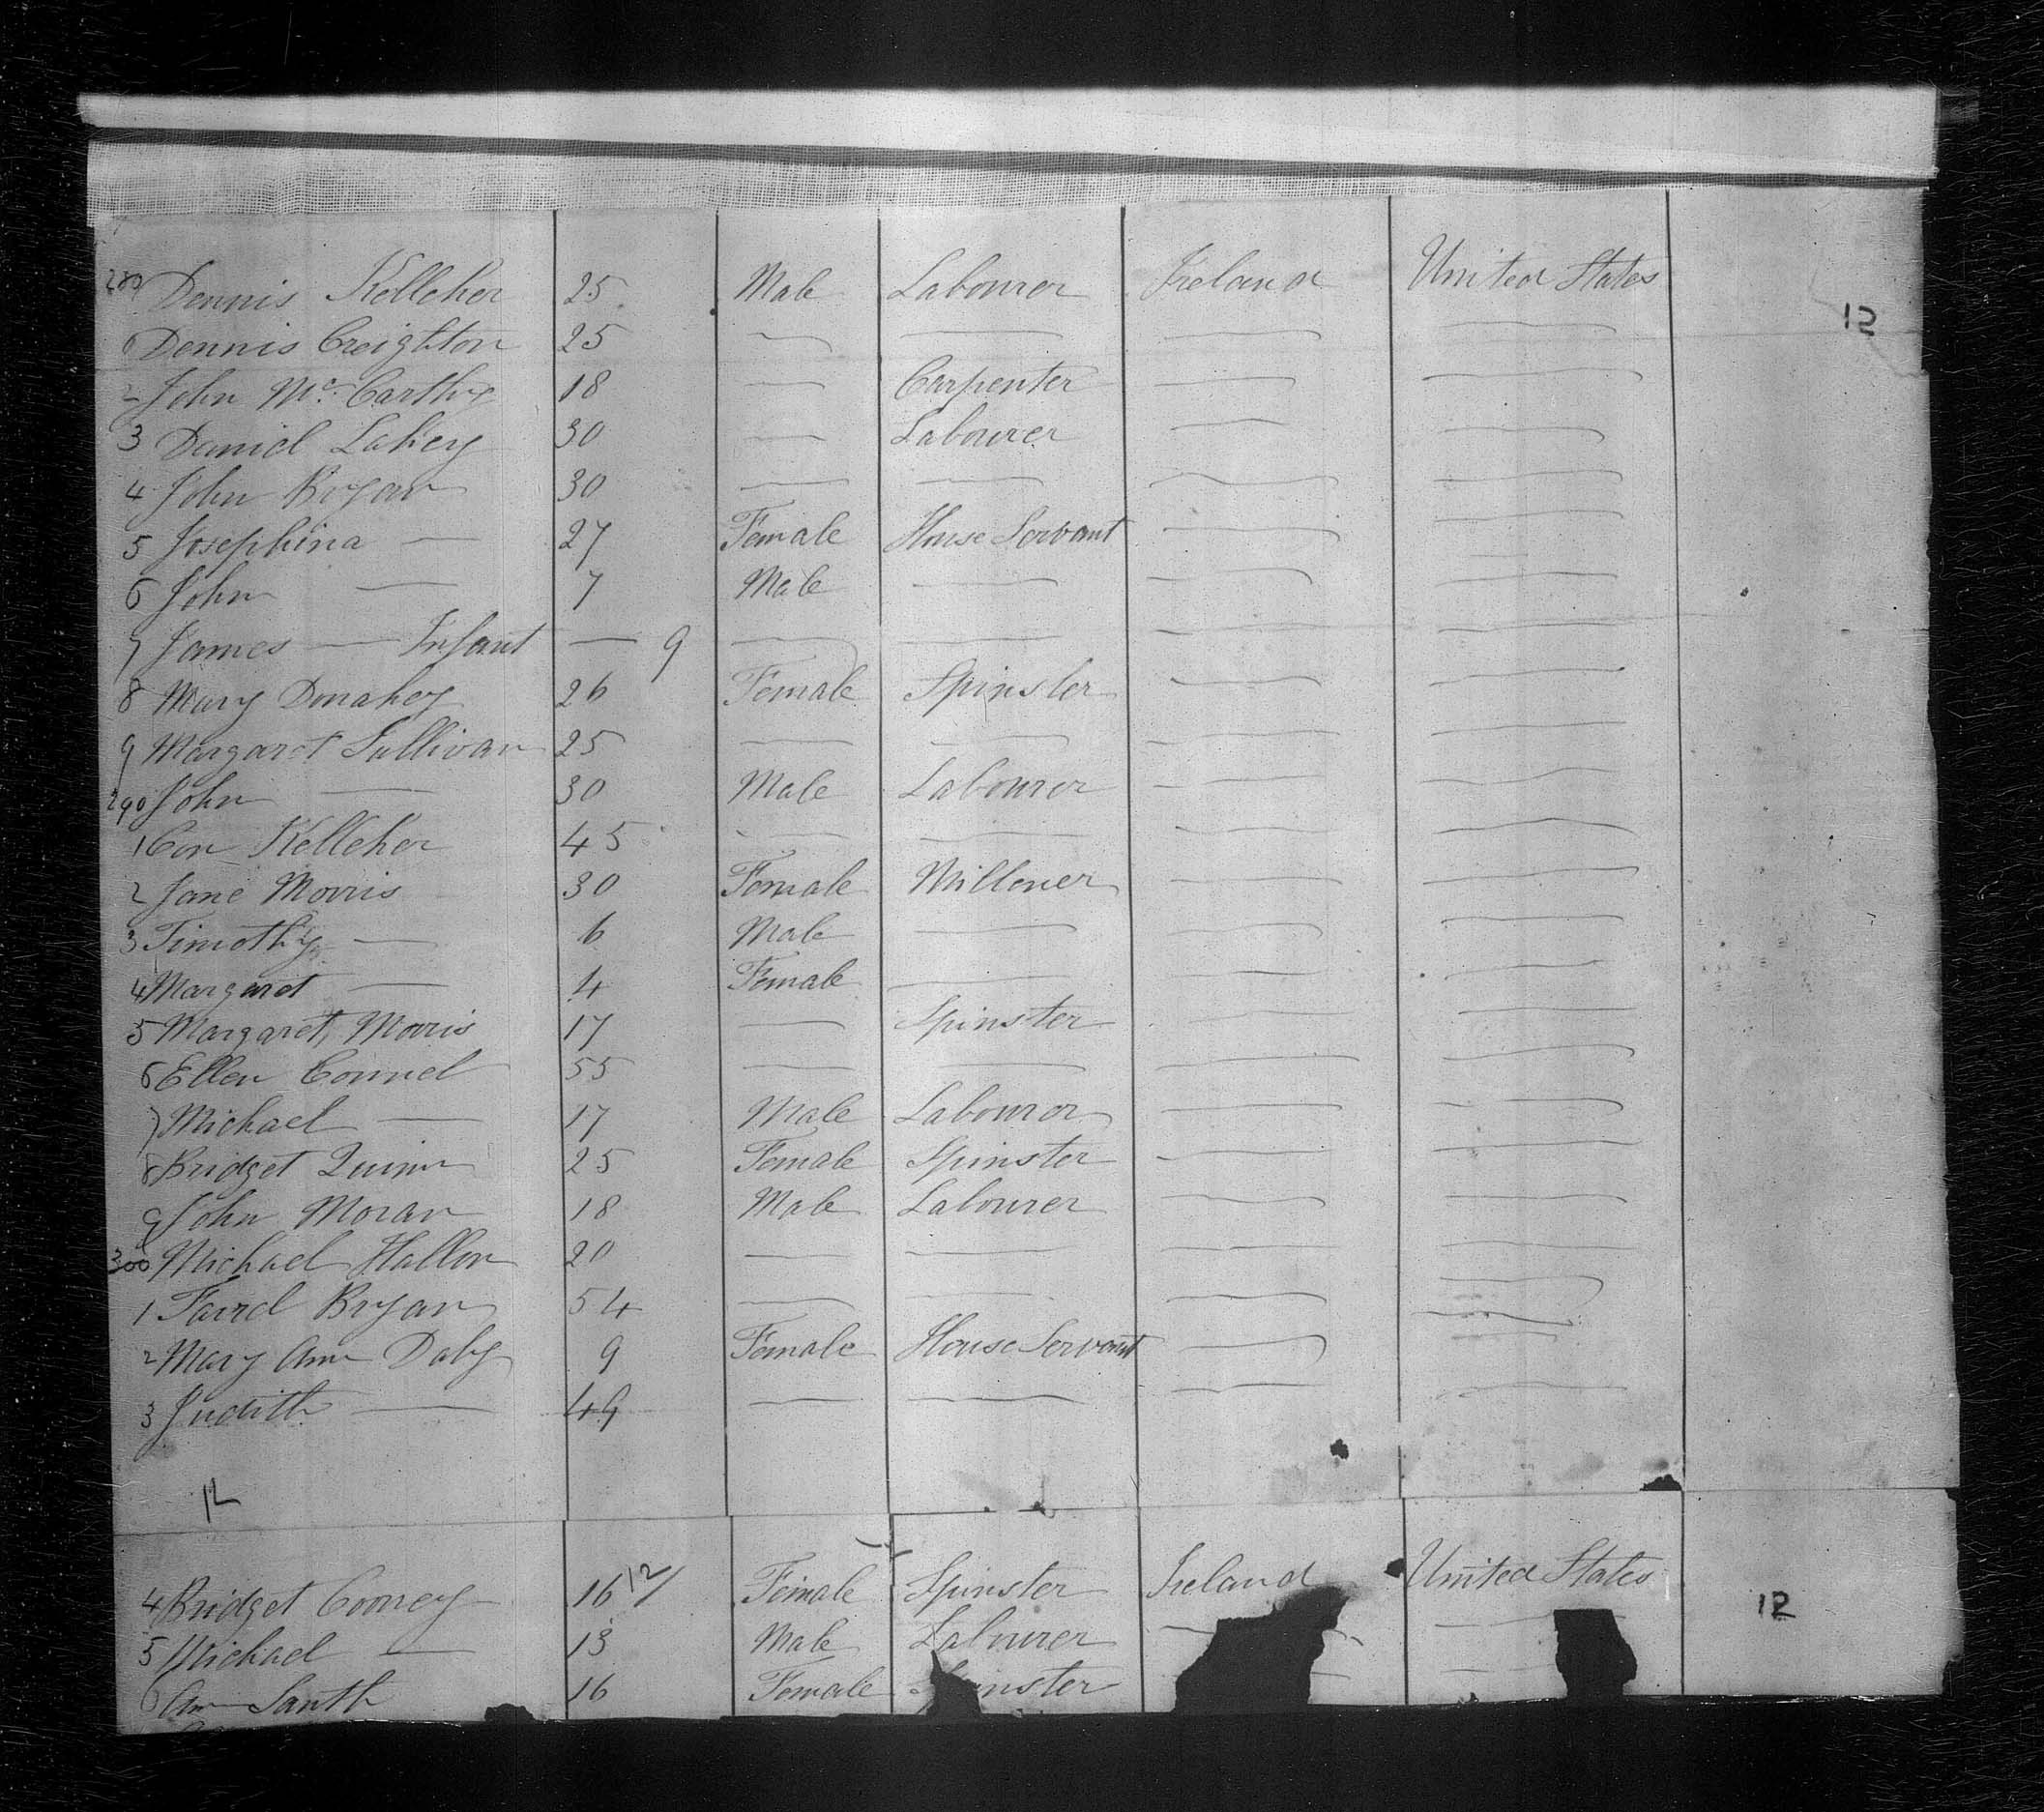 280 Dennis Kelleher 25 Male Labourer Ireland United States
12
1 Dennis Creighton 25 — — — —
2 John Mc Carthy 18 — Carpenter — —
3 Daniel Lahey 30 — Labourer — —
4 John Bryan 30 — — — —
5 Josephina — 27 Female House Servant — —
6 John — 7 Male — — —
7 James — Infant — 9 — — — —
8 Mary Donahey 26 Female Spinster — —
9 Margaret Sullivan 25 — — — —
290 John — 30 Male Labourer — —
1 Con Kelleher 45 — — — —
2 Jane Morris 30 Female Millener — —
3 Timothy — 6 Male — — —
4 Margaret — 4 Female — — —
5 Margaret Morris 17 — Spinster — —
6 Ellen Connel 55 — — — —
7 Michael — 17 Male Labourer — —
8 Bridget Quinn 25 Female Spinster — —
9 John Moran 18 Male Labourer — —
300 Michael Hallon 20 — — — —
1 Bryan 54 — — — —
2 Mary Ann Daly 9 Female House Servant — —
3 Judith — 49 — — — —
12
4 Bridget Cooney 16 12/ Female Spinster Ireland United States
12
5 Michael — 13 Male Labourer — —
6 Ann 16 Female Spinster — —